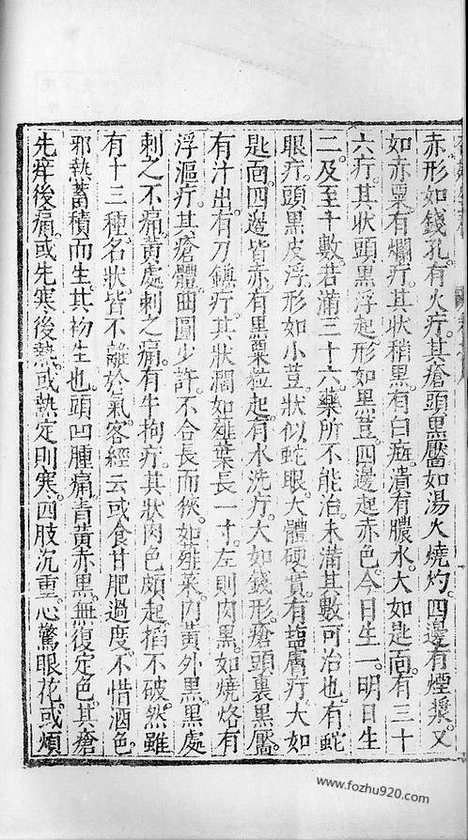 赤形如錢孔有火疔其瘡頭黑靨如湯火燒灼四邊有煙漿又
如赤粟有爛疔其狀稍黑有白癍潰有膿水大如匙面有三十
六疔其狀頭黑浮起形如黑荳四邊起赤色今日生一明日生
二及至十數若滿三十六藥所不能治未滿其數可治也有蛇
眼疔頭黑皮浮形如小荳狀似蛇眼大體硬實有鹽膚疔大如
匙面四邊皆赤有黑粟粒起有水洗疔大如錢形瘡頭裏黑靨
有汁出有刀鐮疔其狀濶如薤葉長一寸左則肉黑如燒烙有
浮漚疔其瘡體曲圓少許不合長而狹如薤菜內黃外黑黑處
刺之不痛黃處刺之痛有牛拘疔其狀肉色頗起掐不破然雖
有十三種名狀皆不離於氣客經云或食甘肥過度不惜酒色
邪熱蓄積而生其初生也頭凹腫痛青黃赤黑無復定色其瘡
先痒後痛或先寒後熱或熱定則寒四肢沉重心驚眼花或煩
www.fozhu920.com